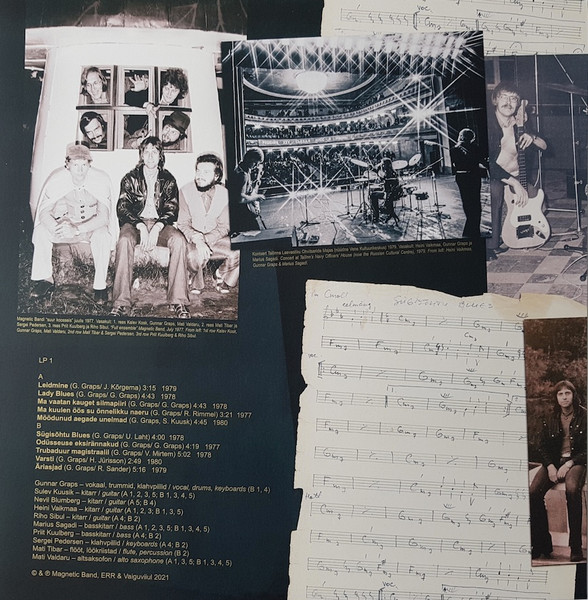 voc.
Magnetic Band "suur koosseis" juulis 1977. Vasakult: 1. reas Kalev Kost, Gunnar Graps, Mati Valdaru, 2. reas Mati Tibar ja
Sergei Pedersen, 3. reas Priit Kuulberg ja Riho Sibul.
Gunnar Graps, Mati Valdaru, 2nd row Mati Tibar & Sergei Pedersen, 3rd row Priit Kuulberg & Riho Sibul
Kontsert Tallinna Laevastiku Ohvitseride Majas (praegune Vene Kultuurikeskus) 1979. Vasakult: Heini Vaikmaa, Gunnar Graps ja
Marius Sagadi. Concert at Tallinn's Navy Officers' House (now the Russian Cultural Center), 1979. From left: Heini Vaikmaa,
Gunnar Graps & Marius Sagadi
SÜGISÕHTU BLUES
LP 1
A
Leidmine (G. Graps/ J. Kõrgema) 3:15 1979
Lady Blues (G. Graps/ G. Graps) 4:43 1978
Ma vaatan kauget silmapiiri (G. Graps/ G. Graps) 4:43 1978
Ma kuulen öös su õnnelikku naeru (G. Graps/ R. Rimmel) 3:21 1977
Möödunud aegade unelmad (G. Graps, S. Kuusk) 4:45 1980
B
Sügisõhtu Blues (G. Graps/ U. Laht) 4:00 1978
Odüsseuse eksirännakud (G. Graps/ G. Graps) 4:19 1977
Trubaduur magistraalil (G. Graps/ V. Mirtem) 5:02 1978
Varsti (G. Graps/ H. Jürisson) 2:49 1980
Äriasjad (G. Graps/ R. Sander) 5:16 1979
Gunnar Graps – vokaal, trummid, klahvpillid / vocal, drums, keyboards (B 1, 4)
Sulev Kuusik – kitarr / guitar (A 1, 2, 3, 5; B 1, 3, 4, 5)
Nevil Blumberg – kitarr / guitar (A 5; B 4)
Heini Vaikmaa – kitarr / guitar (A 1, 2, 3; B 1, 3, 5)
Riho Sibul – kitarr / guitar (A 4; B 2)
Marius Sagadi – basskitarr / bass (A 1, 2, 3, 5; B 1, 3, 4, 5)
Priit Kuulberg – basskitarr / bass (A 4; B 2)
Sergei Pedersen – klahvpillid / keyboards (A 4; B 2)
Mati Tibar – flööt, löökriistad / flute, percussion (B 2)
Mati Valdaru – altsaksofon / alto saxophone (A 1, 3, 5; B 1, 3, 4, 5)
© & ℗ Magnetic Band, ERR & Vaiguviiul 2021
voc.